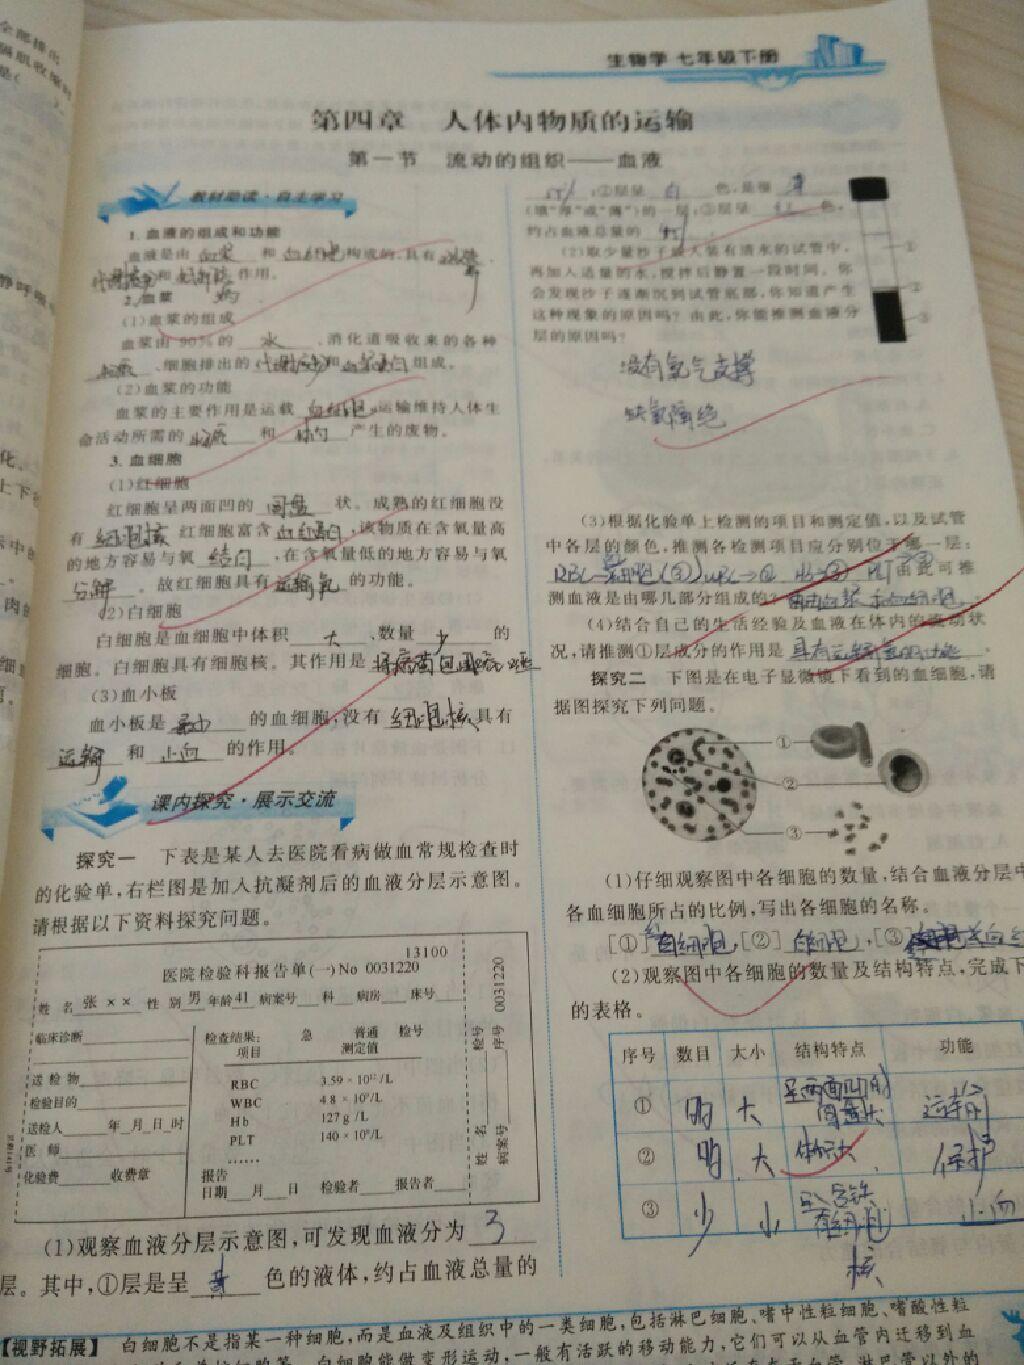 生物学 七年级下册
第四章 人体内物质的运输
第一节 流动的组织——血液
教材助读·自主学习
1.血液的组成和功能
血液是由 血浆 和 血细胞 构成的,具有
和 作用。
2.血浆
(1)血浆的组成
血浆由90%的 水 、消化道吸收来的各种
、细胞排出的 和 血浆蛋白 组成。
(2)血浆的功能
血浆的主要作用是运载 血细胞 ,运输维持人体生
命活动所需的 物质 和 体内 产生的废物。
3.血细胞
(1)红细胞
红细胞呈两面凹的 圆盘 状。成熟的红细胞没
有 细胞核 红细胞富含 血红蛋白 ,该物质在含氧量高
的地方容易与氧 结合 ,在含氧量低的地方容易与氧
分解 。故红细胞具有 运输氧 的功能。
(2)白细胞
白细胞是血细胞中体积 大 、数量 少 的
细胞。白细胞具有细胞核。其作用是
(3)血小板
血小板是 最小 的血细胞,没有 细胞核 具有
运输 和 止血 的作用。
课内探究·展示交流
探究一 下表是某人去医院看病做血常规检查时
的化验单,右栏图是加入抗凝剂后的血液分层示意图。
请根据以下资料探究问题。
13100
医院检验科报告单(一)No 0031220
姓 名 张×× 性 别 男 年龄 41 病案号 科 病房 床号
临床诊断
送 检 物
检验目的
送检人 年 月 日 时
医 师
化验费 收费章
检查结果: 急 普通 检号
项目 测定值
RBC 3.59×10¹²/L
WBC 4.8×10⁹/L
Hb 127g/L
PLT 140×10⁹/L
……
报告
日期 月 日 检验者 报告者
检号
序号 0031220
姓 名
病案号
(1)观察血液分层示意图,可发现血液分为 3
层。其中,①层是呈 黄 色的液体,约占血液总量的
55% ;②层呈 白 色,是很 薄
(填“厚”或“薄”)的一层;③层呈 红 色,
约占血液总量的
(2)取少量沙子放入装有清水的试管中,
再加入适量的水,搅拌后静置一段时间。你
会发现沙子逐渐沉到试管底部,你知道产生
这种现象的原因吗?由此,你能推测血液分
层的原因吗?
没有氧气支撑
缺氧隔绝
①
②
③
(3)根据化验单上检测的项目和测定值,以及试管
中各层的颜色,推测各检测项目应分别位于哪一层:
由此可推
测血液是由哪几部分组成的?
(4)结合自己的生活经验及血液在体内的流动状
况,请推测①层成分的作用是
探究二 下图是在电子显微镜下看到的血细胞,请
据图探究下列问题。
①
②
③
(1)仔细观察图中各细胞的数量,结合血液分层中
各血细胞所占的比例,写出各细胞的名称。
[①] 红细胞 ,[②] 白细胞 ,[③]
(2)观察图中各细胞的数量及结构特点,完成下
的表格。
序号 数目 大小 结构特点 功能
① 大 呈两面凹的圆盘状 运输
② 大 体积大 保护
③ 少 小 止血
【视野拓展】 白细胞不是指某一种细胞,而是血液及组织中的一类细胞,包括淋巴细胞、嗜中性粒细胞、嗜酸性粒
白细胞能做变形运动,一般有活跃的移动能力,它们可以从血管内迁移到血